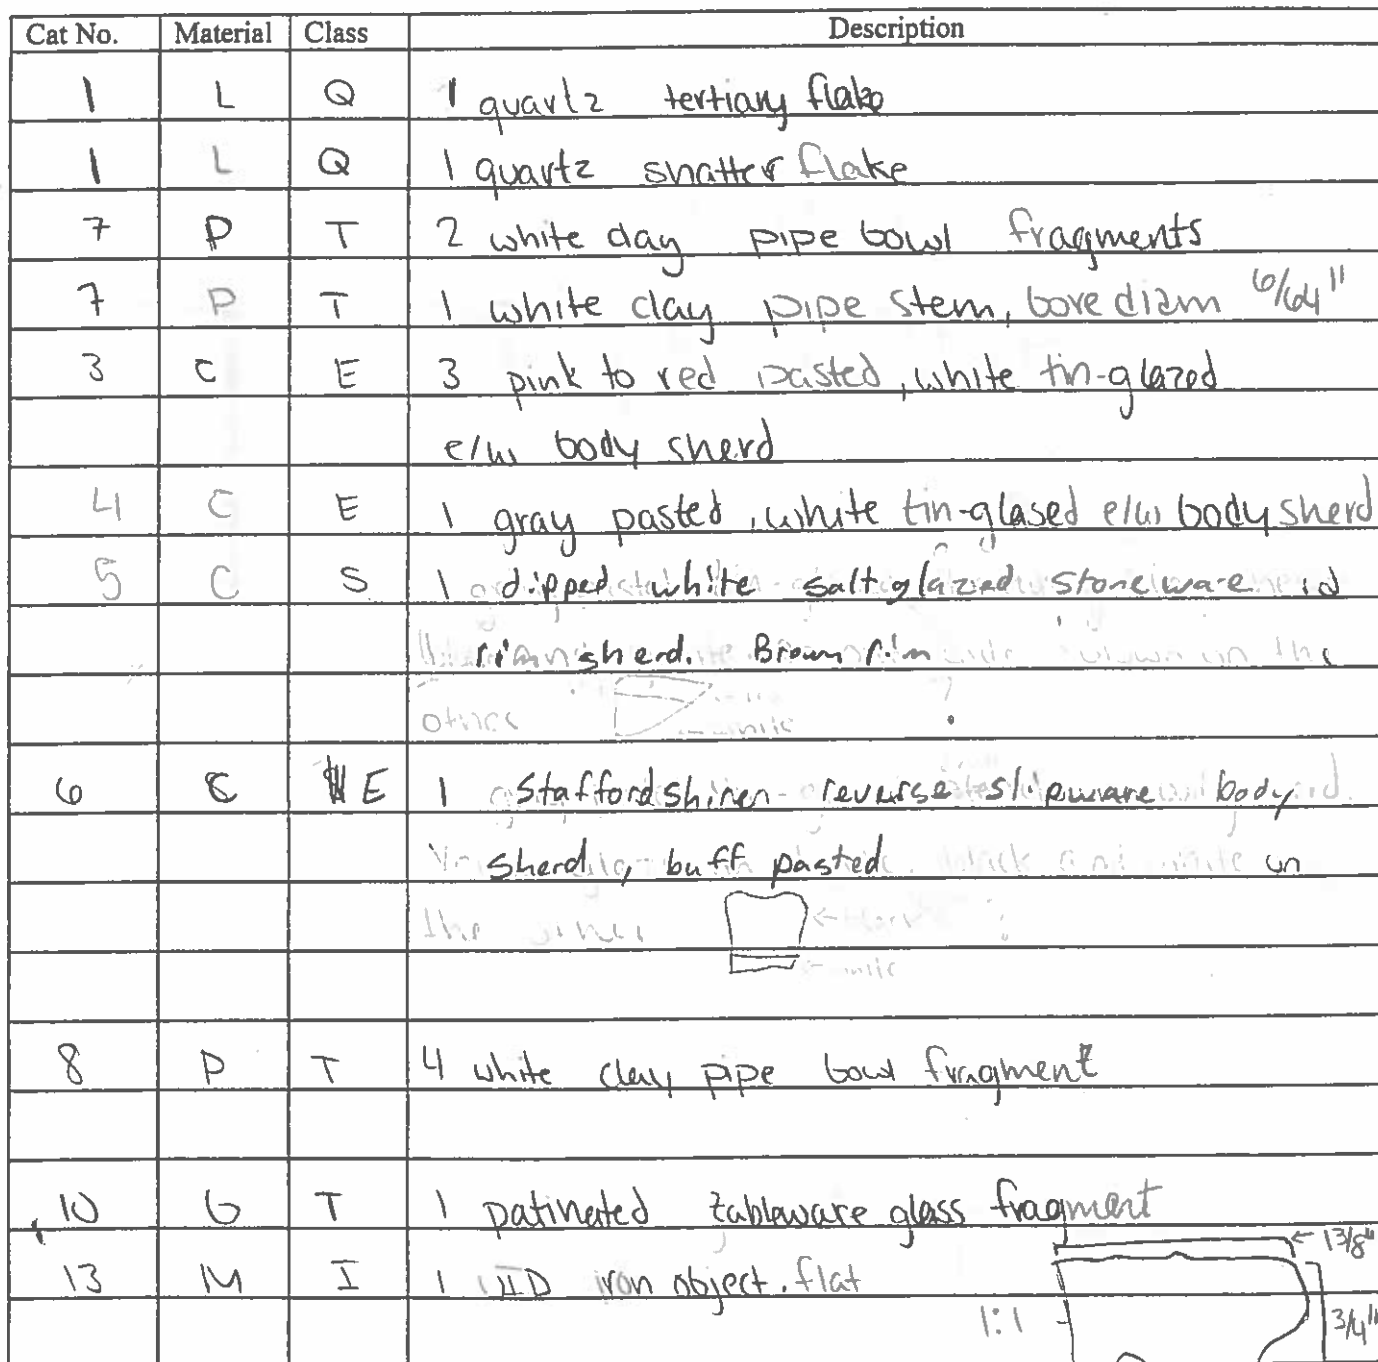 Cat No. Material Class Description
1 L Q 1 quartz tertiary flake
1 L Q 1 quartz shatter flake
7 P T 2 white clay pipe bowl fragments
7 P T 1 white clay pipe stem, bore diam 6/64"
3 C E 3 pink to red pasted, white tin-glazed
e/w body sherd
4 C E 1 gray pasted, white tin-glased e/w body sherd
5 C S 1 dipped white salt glazed stoneware
rim sherd. Brown rim in the
other white ?
6 C E 1 Staffordshire reverse slipware body
sherd, buff pasted on
the other
8 P T 4 white clay pipe bowl fragment
10 G T 1 patinated tableware glass fragment
13 M I 1 UID iron object. flat
← 1 3/8"
1:1
3/4"